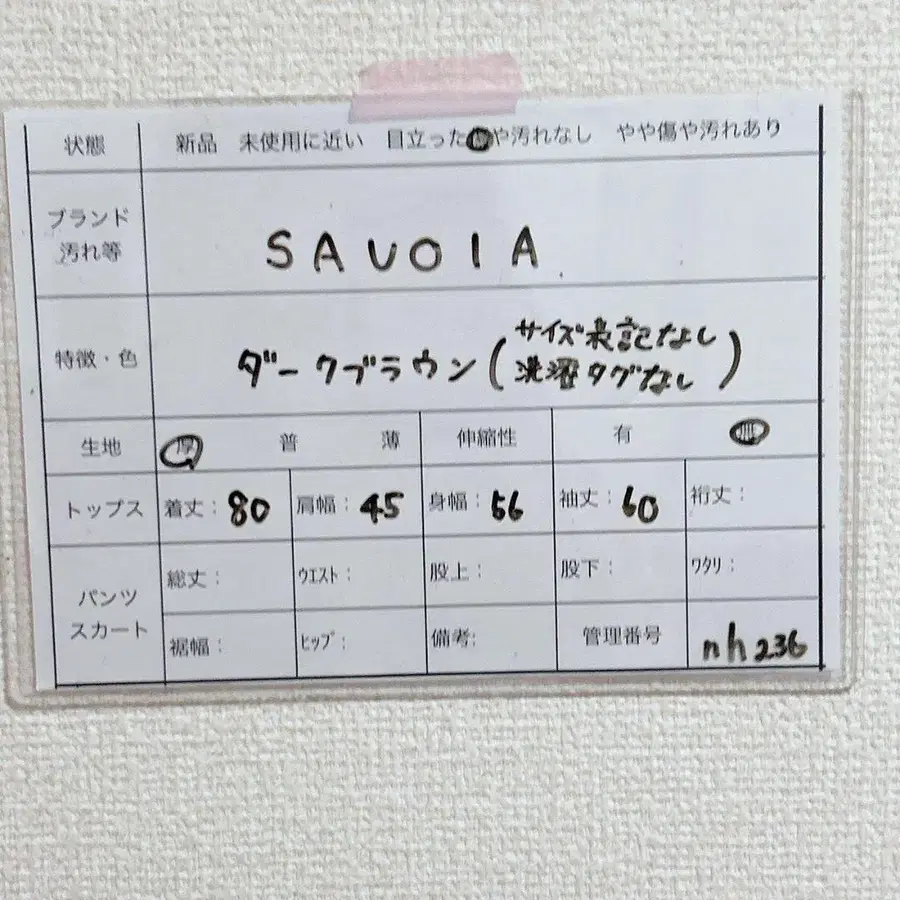 状態 新品 未使用に近い 目立った傷や汚れなし やや傷や汚れあり
ブランド
汚れ等
SAVOIA
特徴・色
ダークブラウン(サイズ表記なし
洗濯タグなし)
生地 厚 普 薄 伸縮性 有 無
トップス 着丈:80 肩幅:45 身幅:56 袖丈:60 裄丈:
パンツ
スカート
総丈: ウエスト: 股上: 股下: ワタリ:
裾幅: ヒップ: 備考: 管理番号 nh236